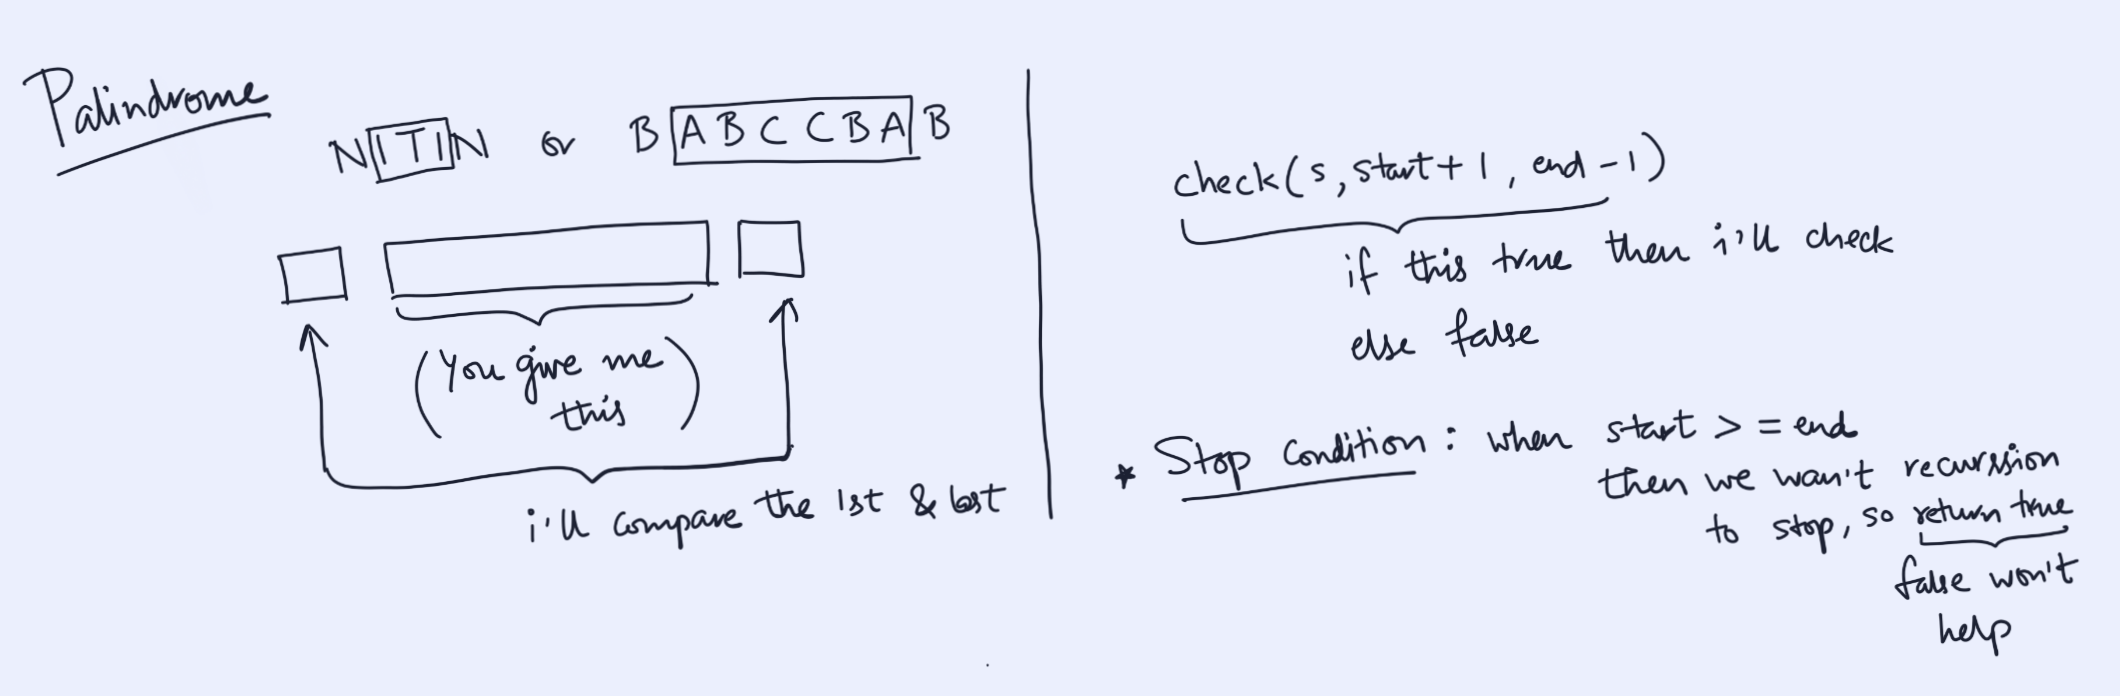 Palindrome
NITIN or BABCCBAB
(You give me
this)
i'll compare the 1st & last
check(s, start+1, end-1)
if this true then i'll check
else false
* Stop Condition: when start >= end
then we wan't recurssion
to stop, so return true
false won't
help